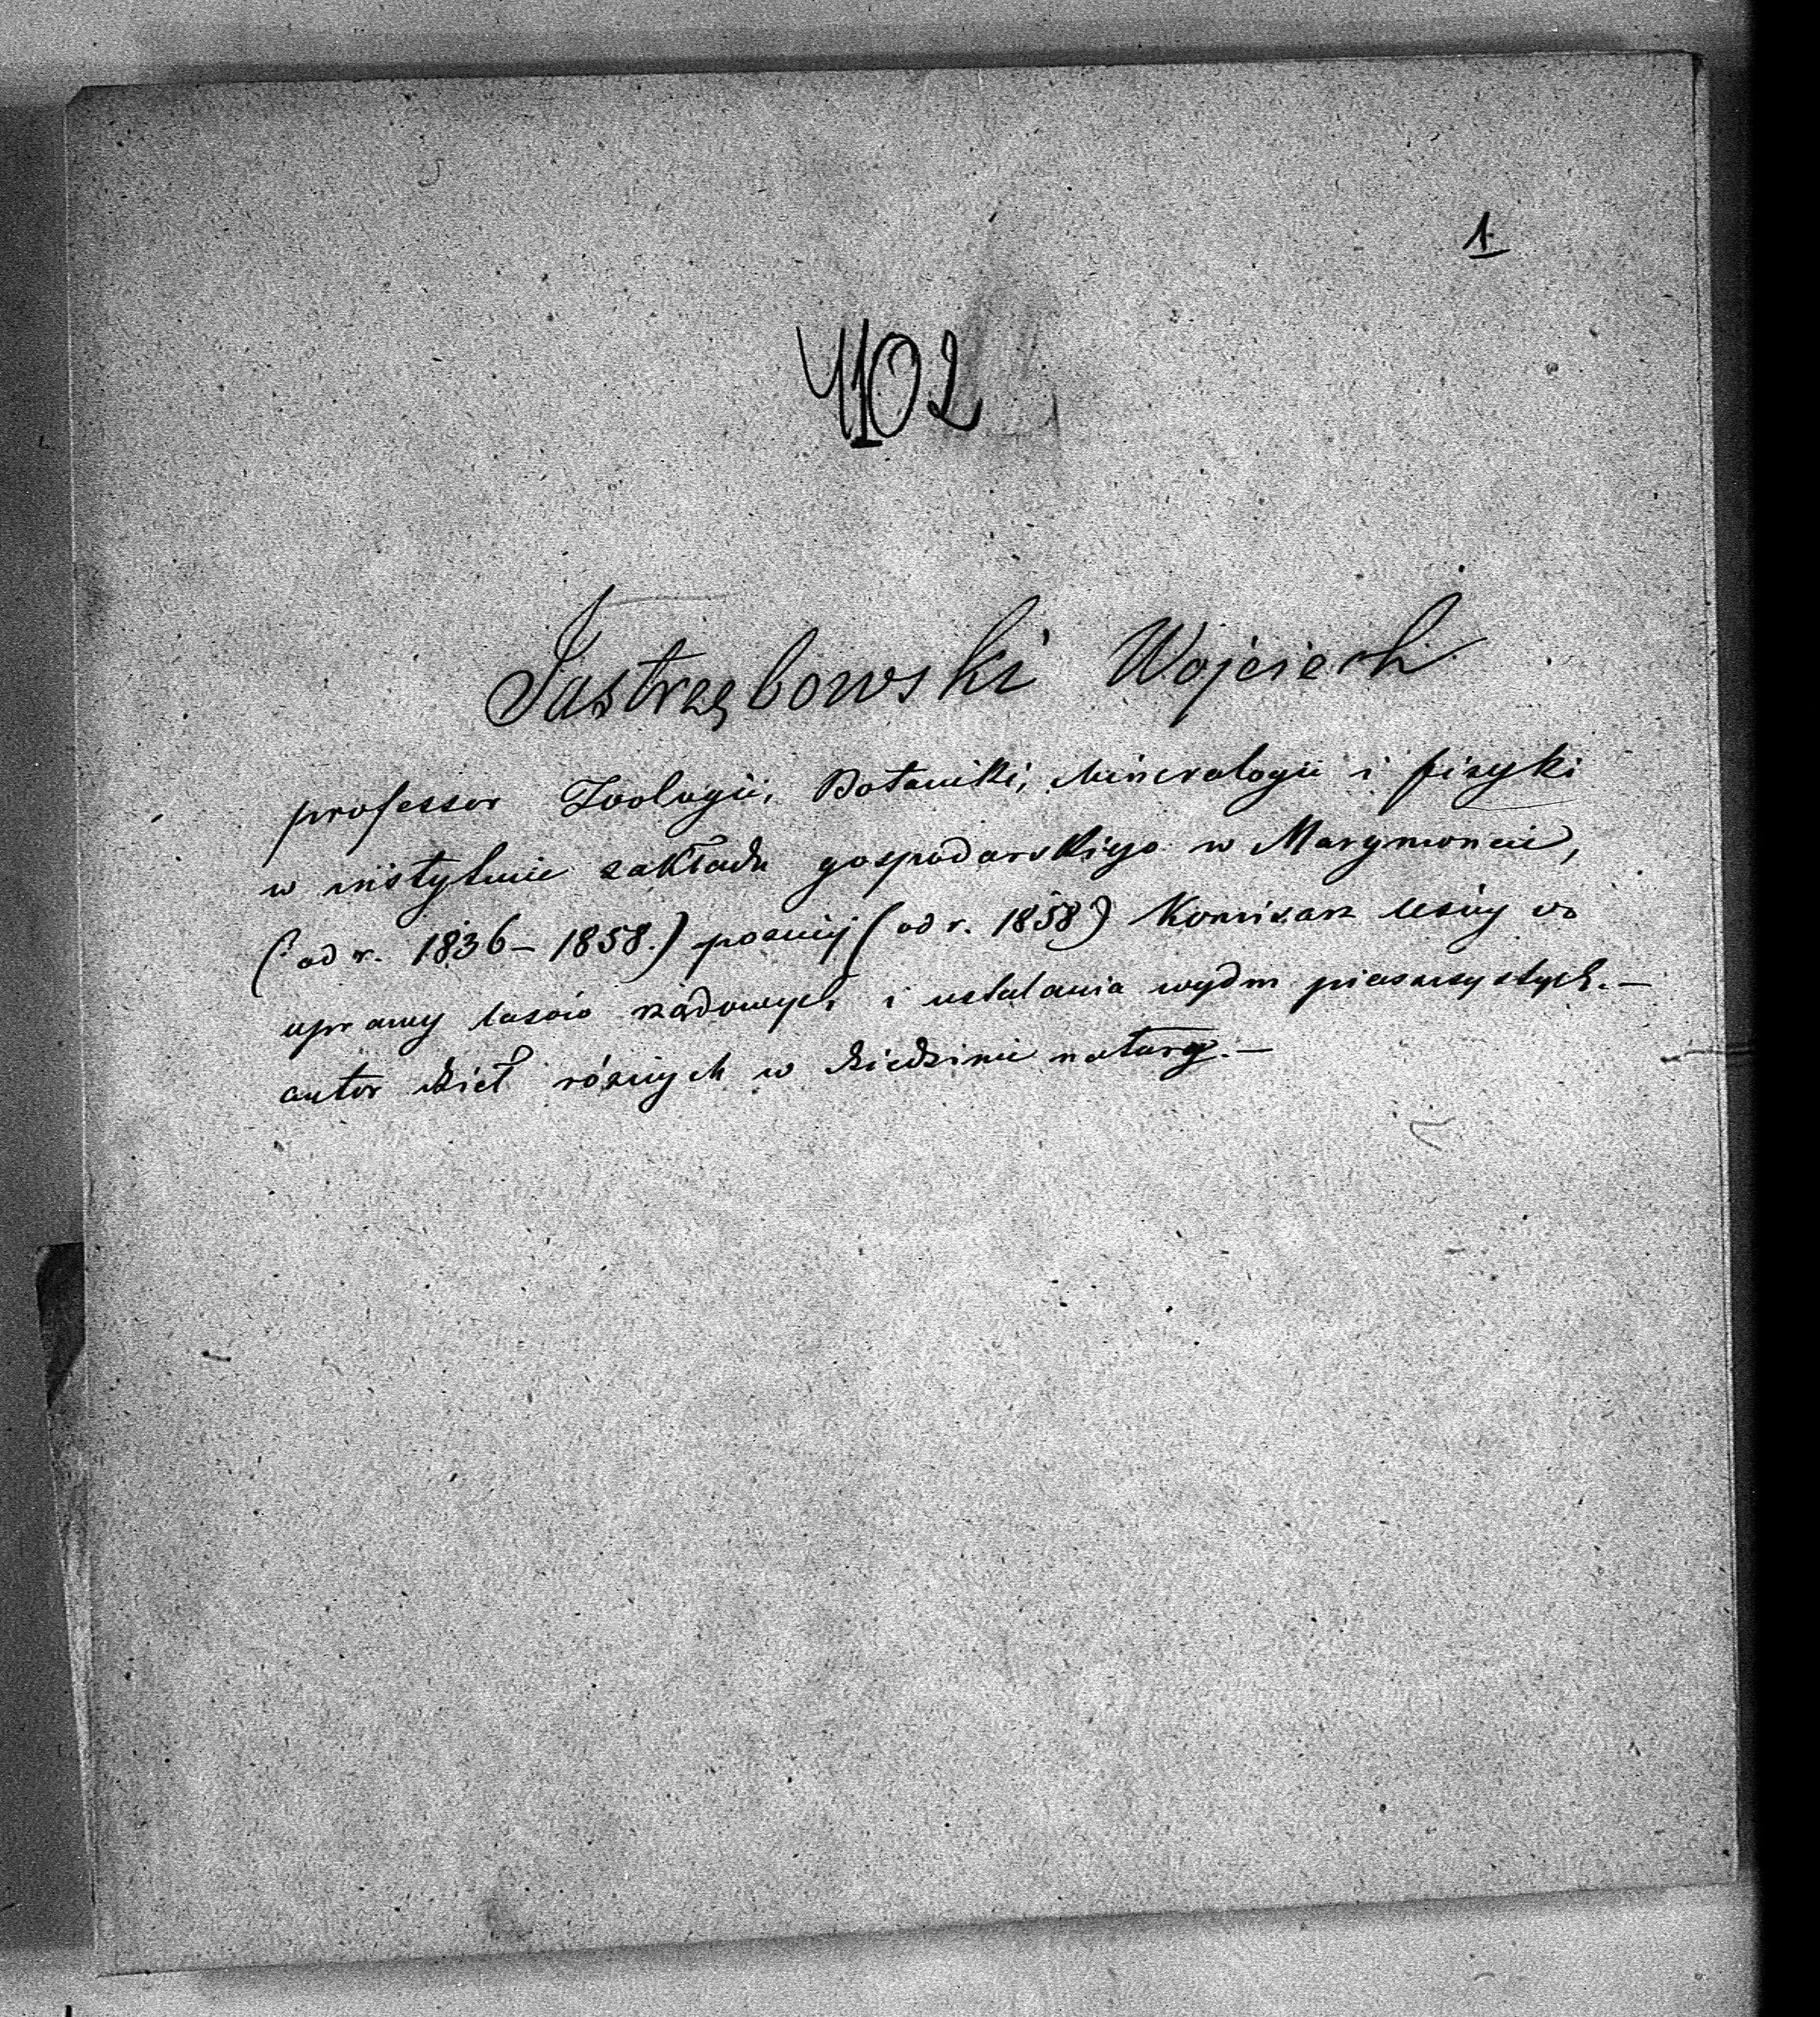 1
4102
Jastrzębowski Wojciech
professor Zoologii, Botaniki, Mineralogii i fizyki
w instytucie zakładu gospodarskiego w Marymoncie,
(od r. 1836 – 1858.) pozniej (od r. 1858) Komisarz leśny do
uprawy lasów rządowych i ustalania wydm piasczystych. –
autor dzieł różnych w dziedzinie natury. –